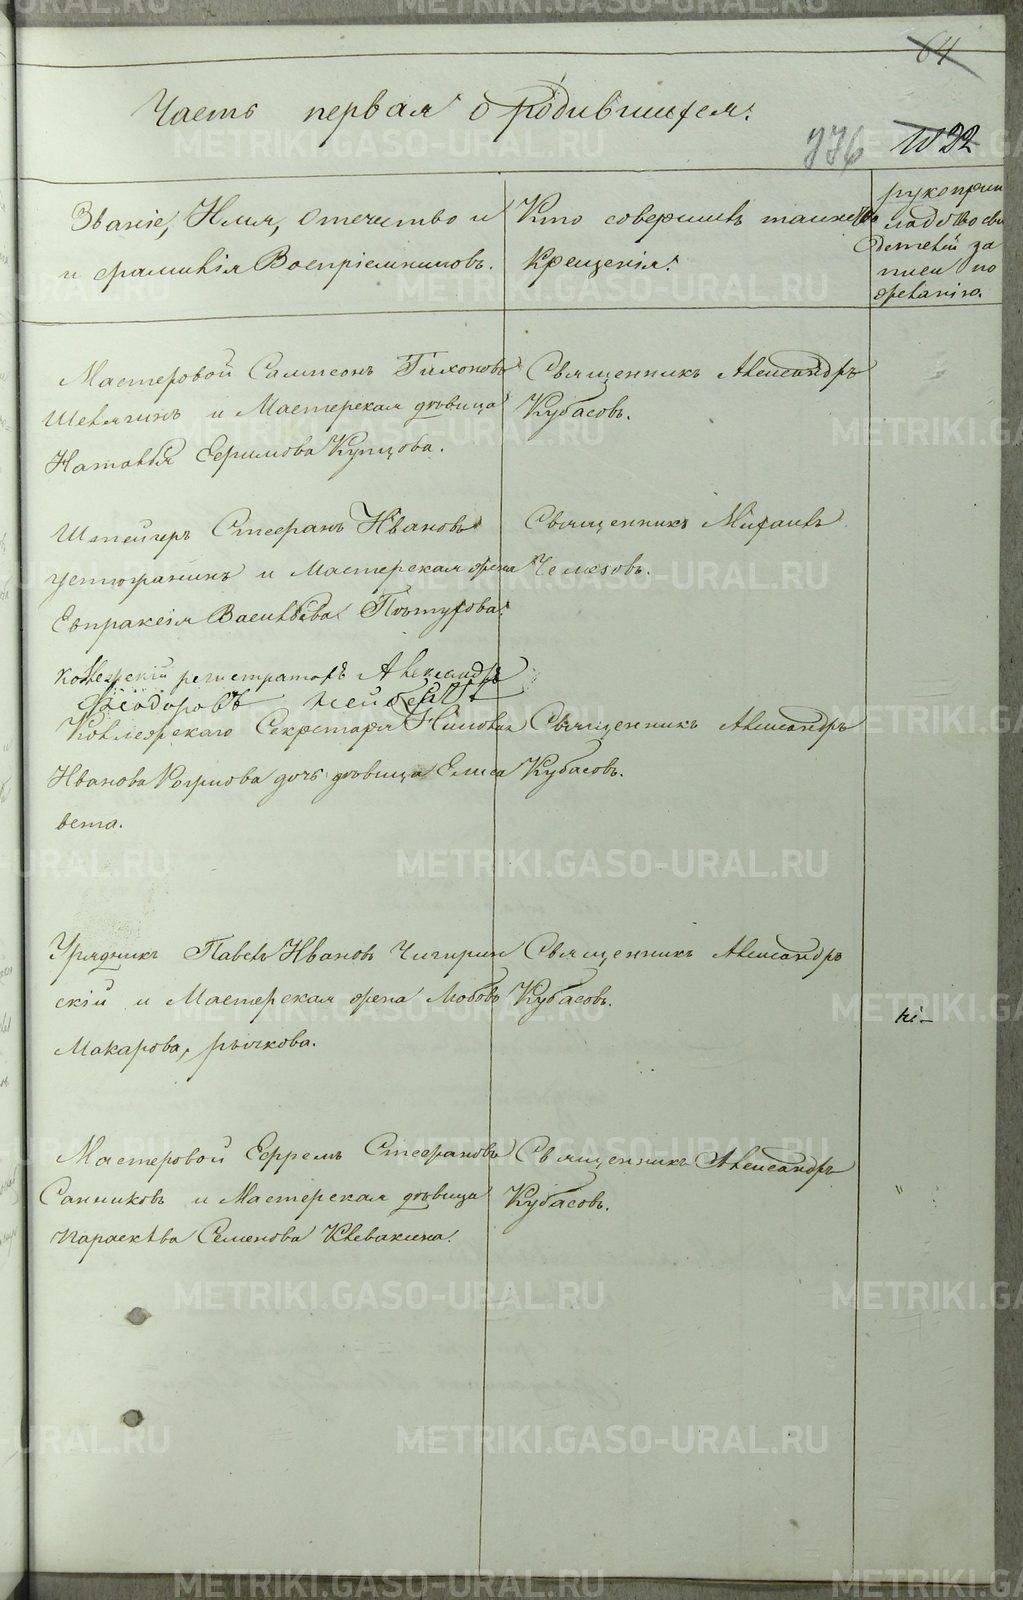 64
Часть первая о родившихся.
776 1022
Званіе, Имя, Отечество и
и фамилія Воспріемниковъ.
Кто совершилъ таинство
Крещенія.
рукоприк
ладство сви
детелей за
писи по
желанію.
Мастеровой Сампсонъ Тихоновъ
Шевлягинъ и Мастерская дѣвица
Наталья Ефимова Купцова.
Священникъ Александръ
Кубасовъ.
Штейгеръ Стефанъ Ивановъ
и Мастерская жена
Евпраксія Васильева Пѣтухова.
Священникъ Михаилъ
Челазовъ.
Коллежскій регистраторъ Александръ
Ѳеодоровъ
Коллежскаго Секретаря
Иванова дочь дѣвица Елиса
вета.
Священникъ Александръ
Кубасовъ.
Урядникъ Павелъ Ивановъ Чигирин
скій и Мастерская жена Любовь
Макарова, рычкова.
Священникъ Александръ
Кубасовъ.
Мастеровой Ефремъ Стефановъ
Санниковъ и Мастерская дѣвица
Параскѣва Семенова Клевакина.
Священникъ Александръ
Кубасовъ.
METRIKI.GASO-URAL.RU